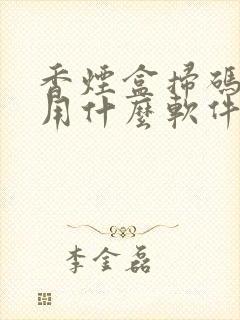 香煙盒掃碼
用什麼軟件
李金磊